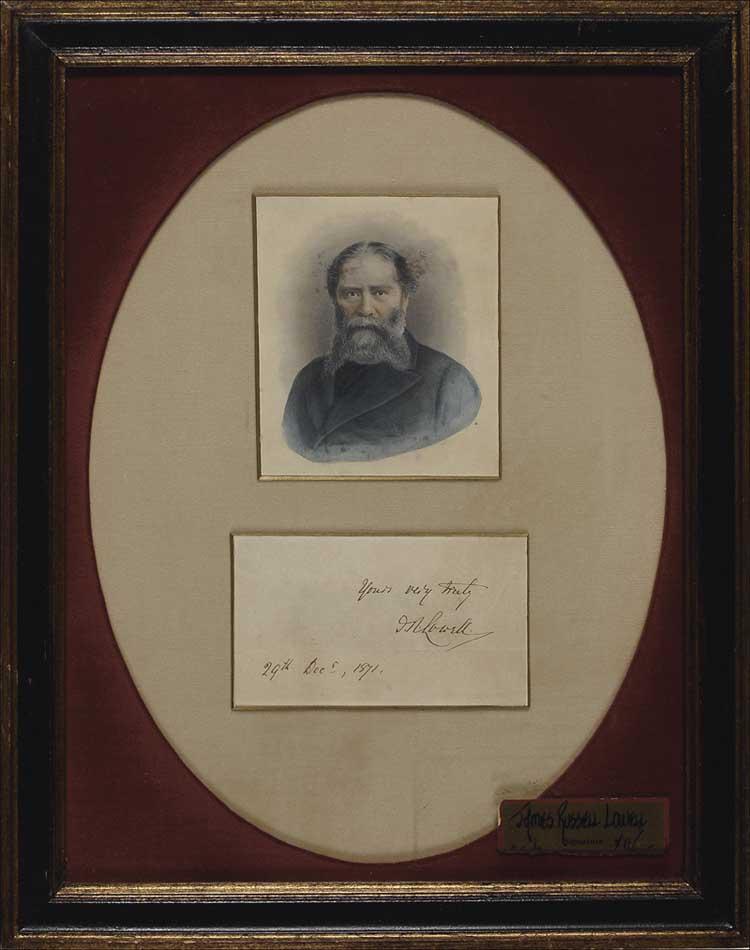 Yours very truly
J R Lowell
29th Decr, 1871.
James Russell Lowell